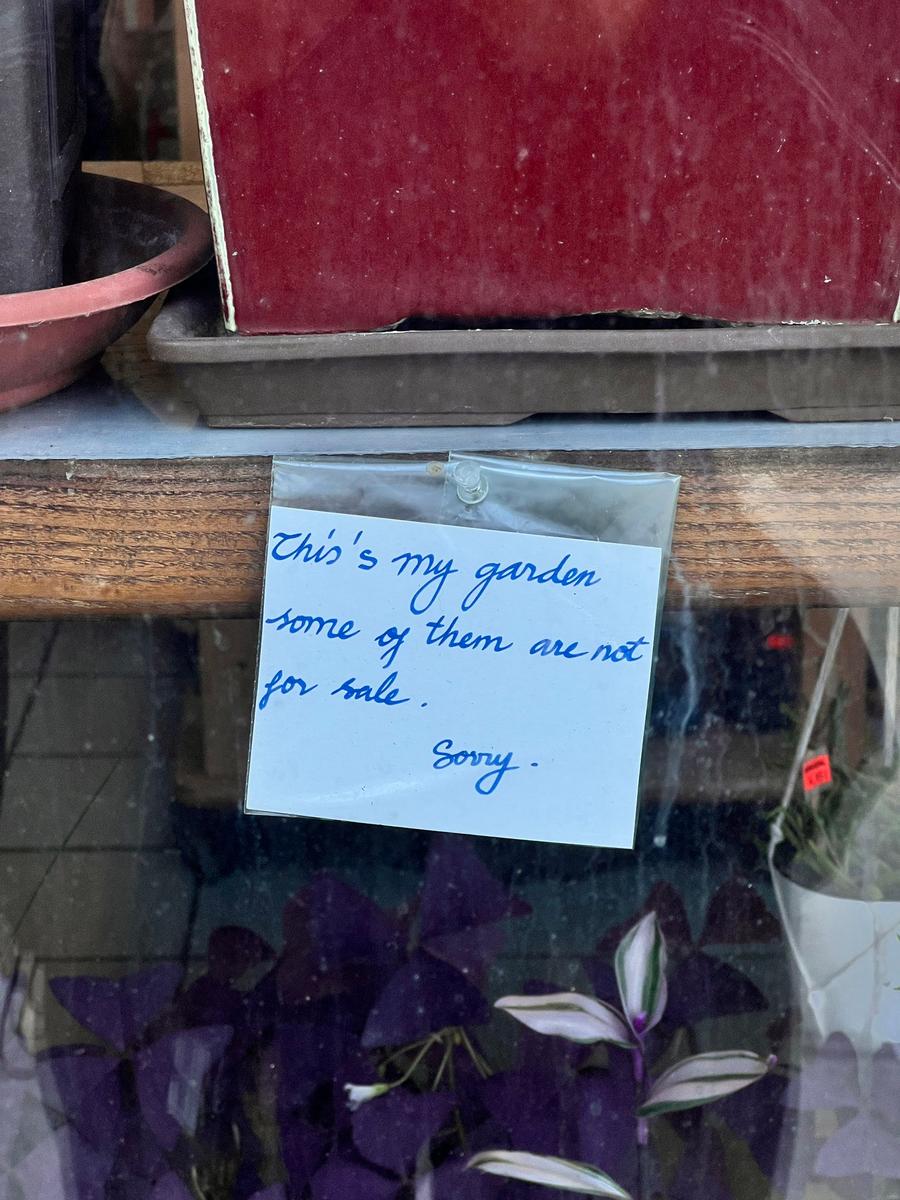 This's my garden
some of them are not
for sale.
Sorry.